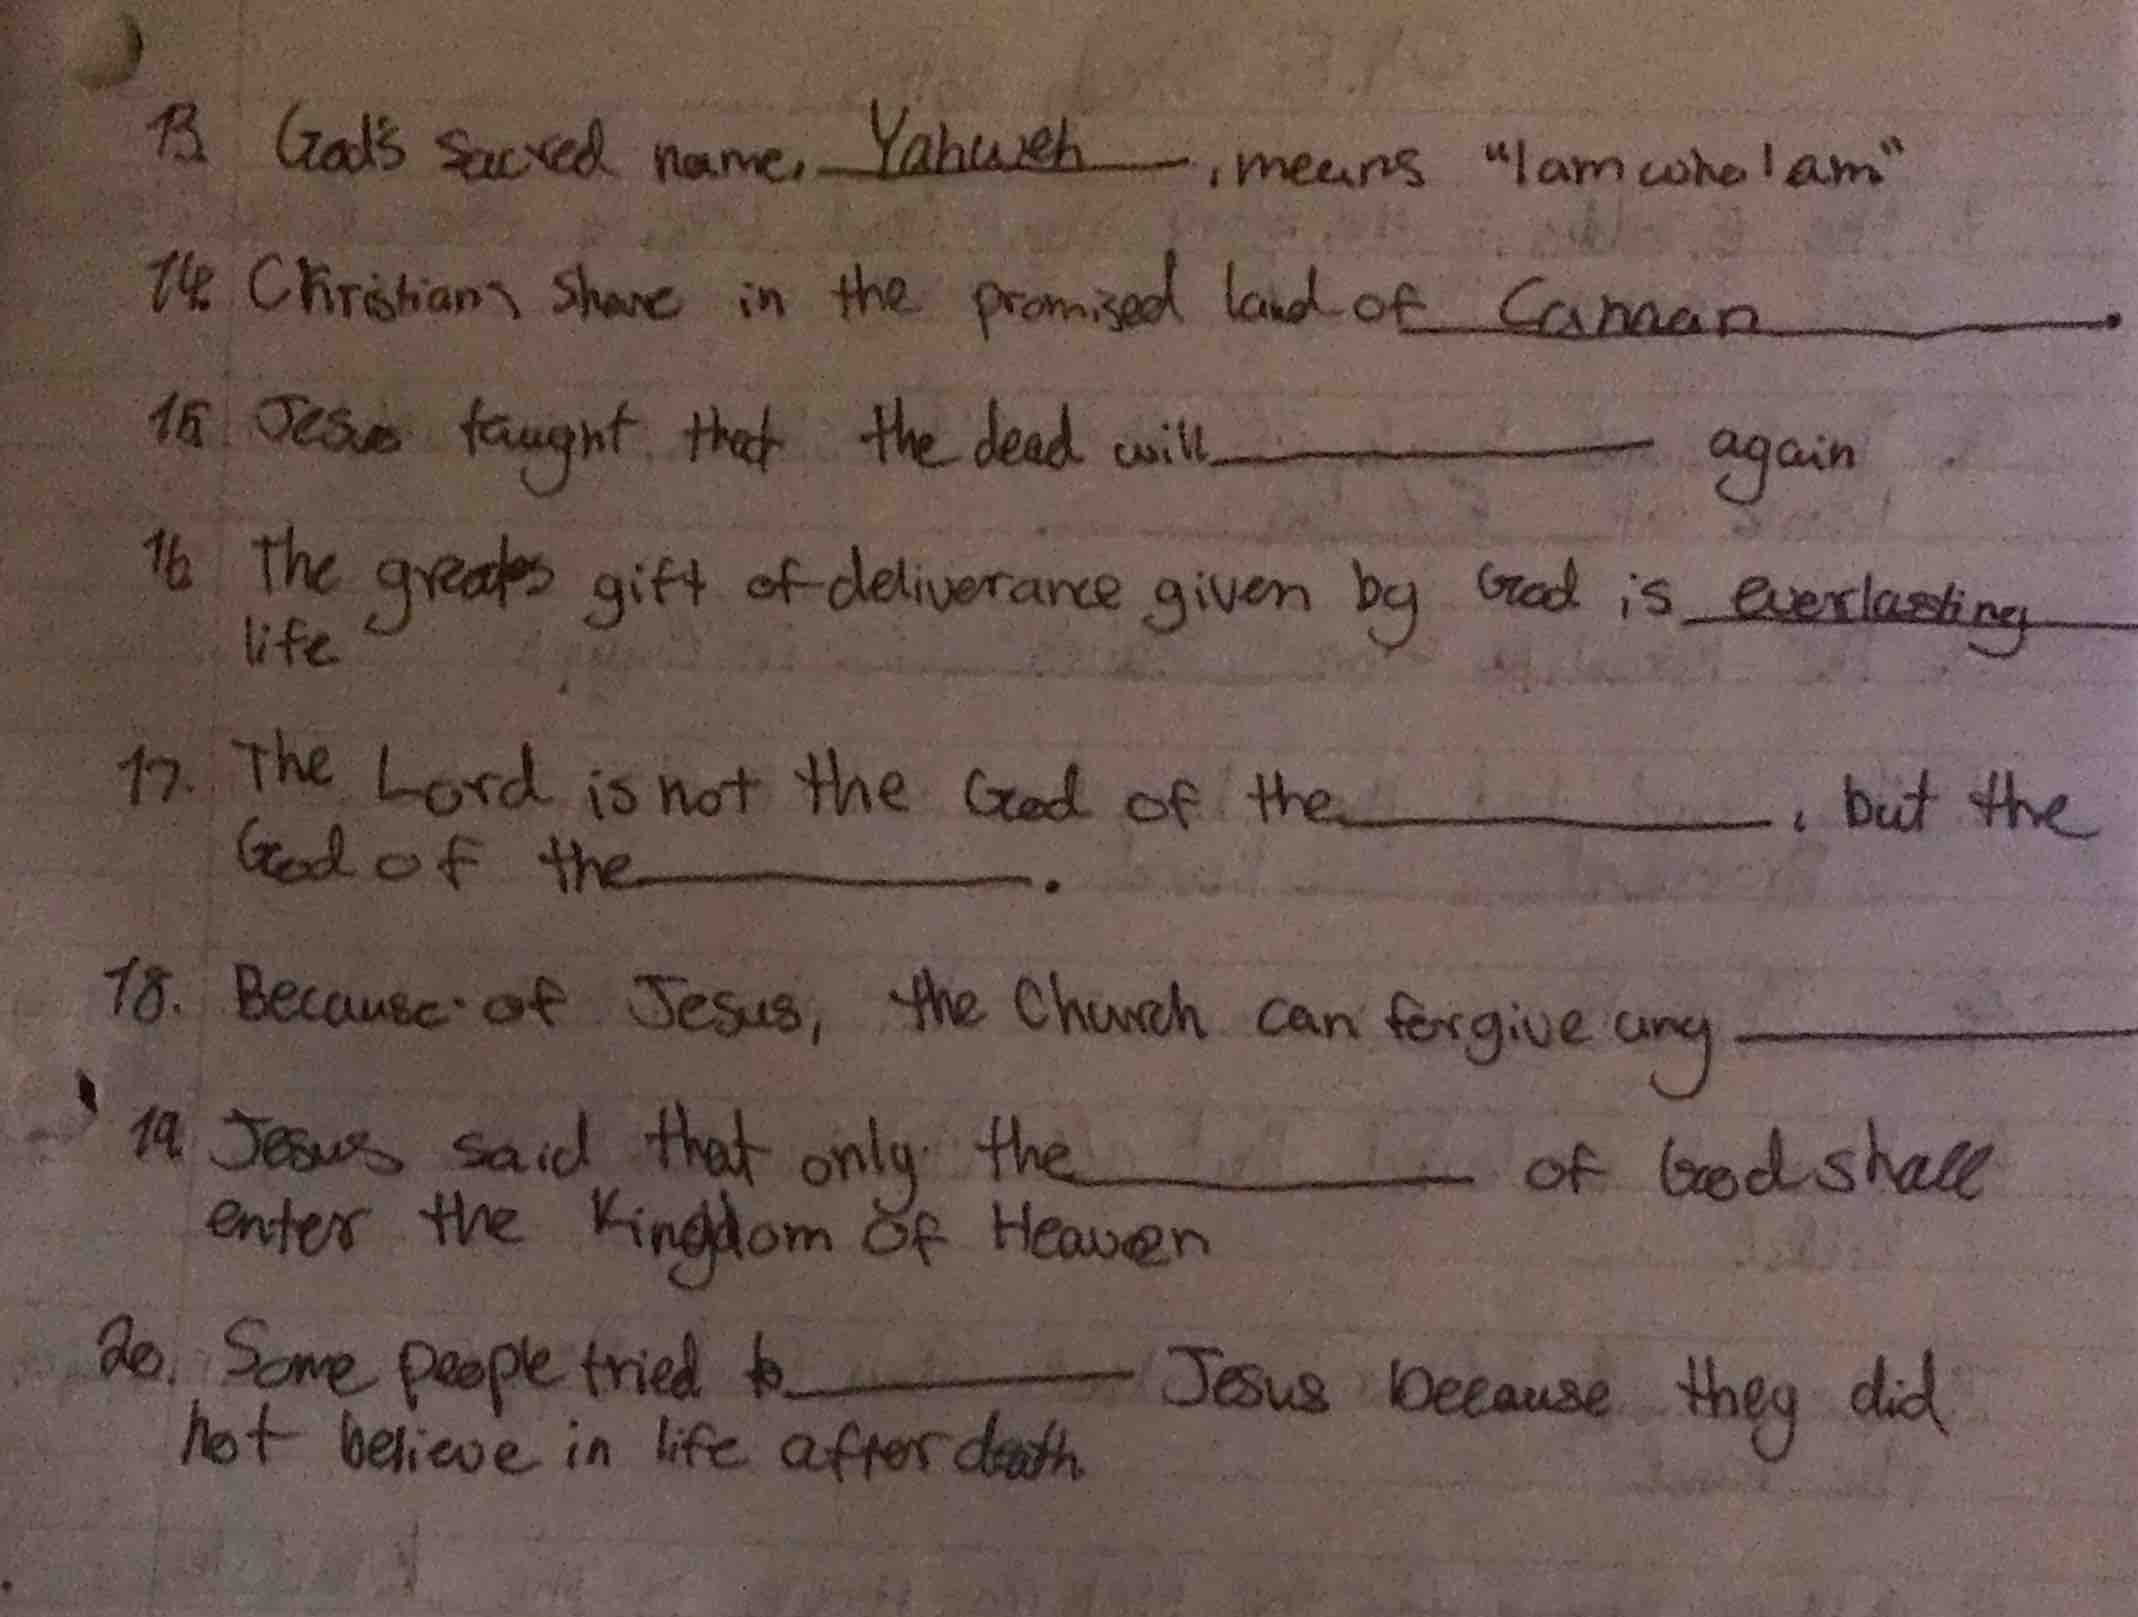 13. God's sacred name, Yahweh, means "I am who I am"
14. Christians share in the promised land of Canaan.
15. Jesus taught that the dead will ________ again
16 The greates gift of deliverance given by God is everlasting
life
17. The Lord is not the God of the ________, but the
God of the ________.
18. Because of Jesus, the Church can forgive any ________
19. Jesus said that only the ________ of God shall
enter the Kingdom of Heaven
20. Some people tried to ________ Jesus because they did
not believe in life after death